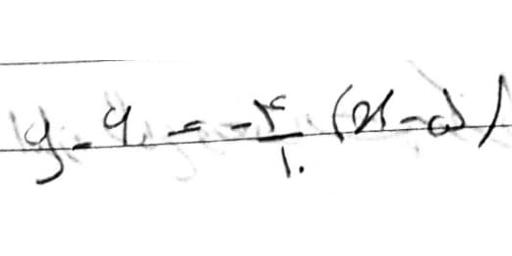 y - ۹ = -۴/۱۰ (x - ۵)